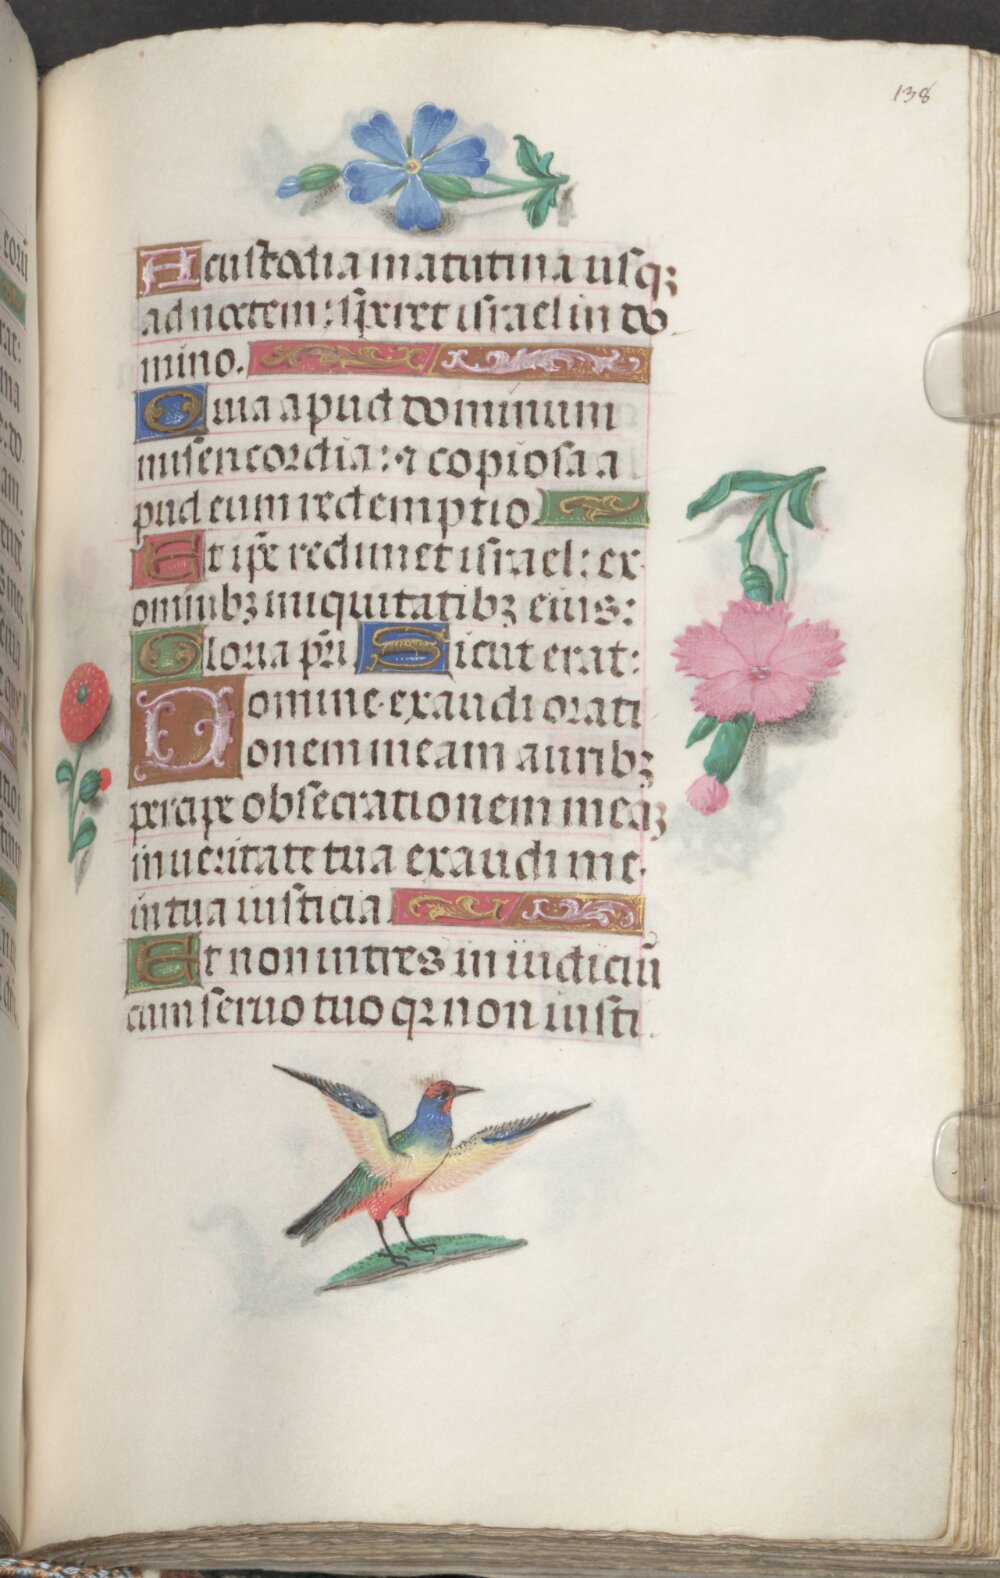 138
A custodia matutina usq;
ad noctem: speret israel in do
mino.
Quia apud dominum
misericordia: ⁊ copiosa a
pud eum redemptio.
Et ipe redimet israel: ex
omnibꝫ iniquitatibꝫ eius:
Gloria pri. Sicut erat:
Domine exaudi orati
onem meam auribꝫ
percipe obsecrationem meaꝫ
in ueritate tua exaudi me
in tua iusticia.
Et non intres in iudiciū
cum seruo tuo qꝛ non iusti